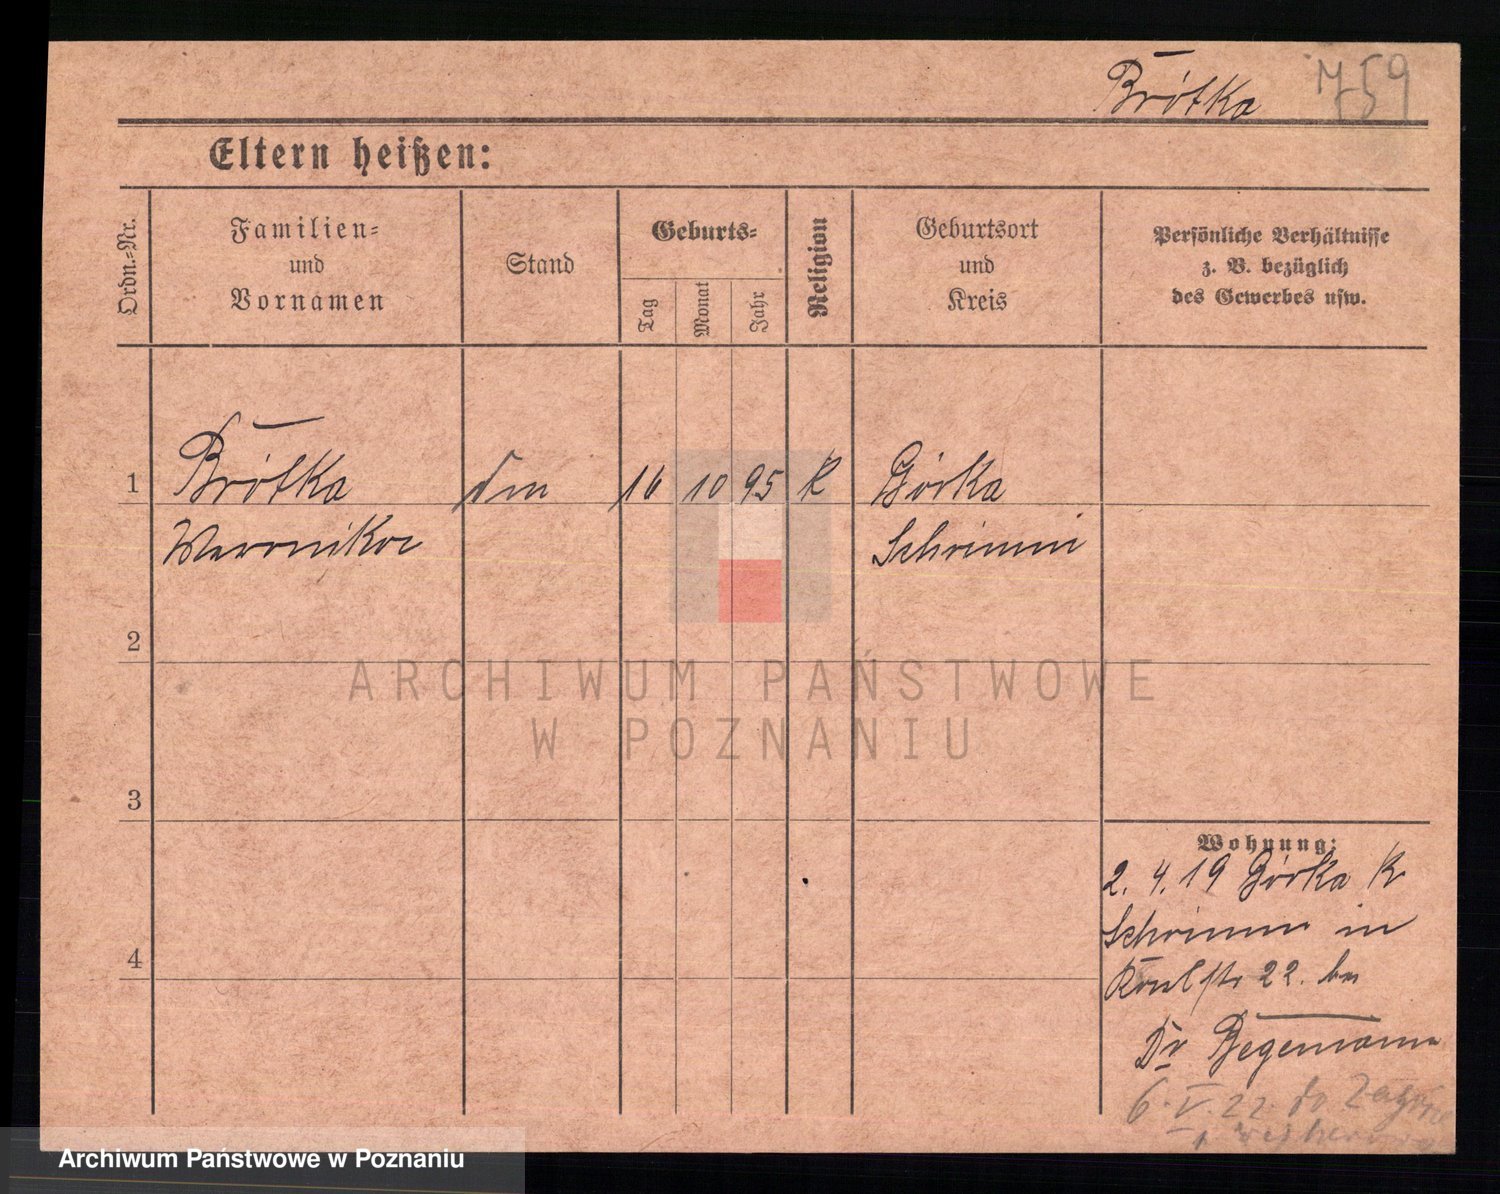 Brótka 759
Eltern heißen:
Ordn.-Nr.
Familien-
und
Vornamen
Stand
Geburts-
Tag
Monat
Jahr
Religion
Geburtsort
und
Kreis
Persönliche Verhältnisse
z. B. bezüglich
des Gewerbes usw.
1 Brótka 16 10 95 K Górka
Weronika Schrimm
2
3
4
Wohnung:
2. 4. 19 Górka K
Schrimm in
22. bei
Dr Begemann
6. V. 22 do
ARCHIWUM PAŃSTWOWE
W POZNANIU
Archiwum Państwowe w Poznaniu